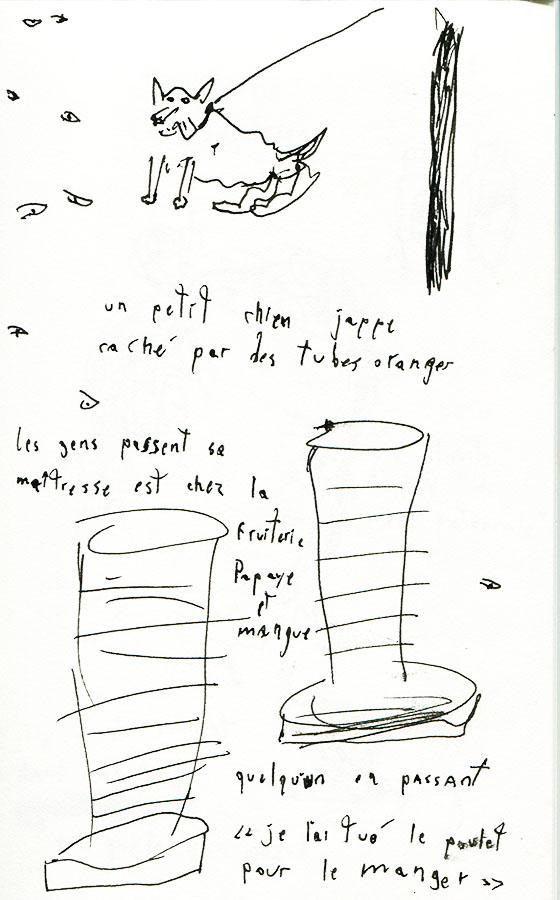 un petit chien jappe
caché par des tubes oranger
les gens passent sa
maîtresse est chez la
fruiterie
Papaye
et
mangue
quelqu'un en passant
« je l'ai tué le
pour le manger »